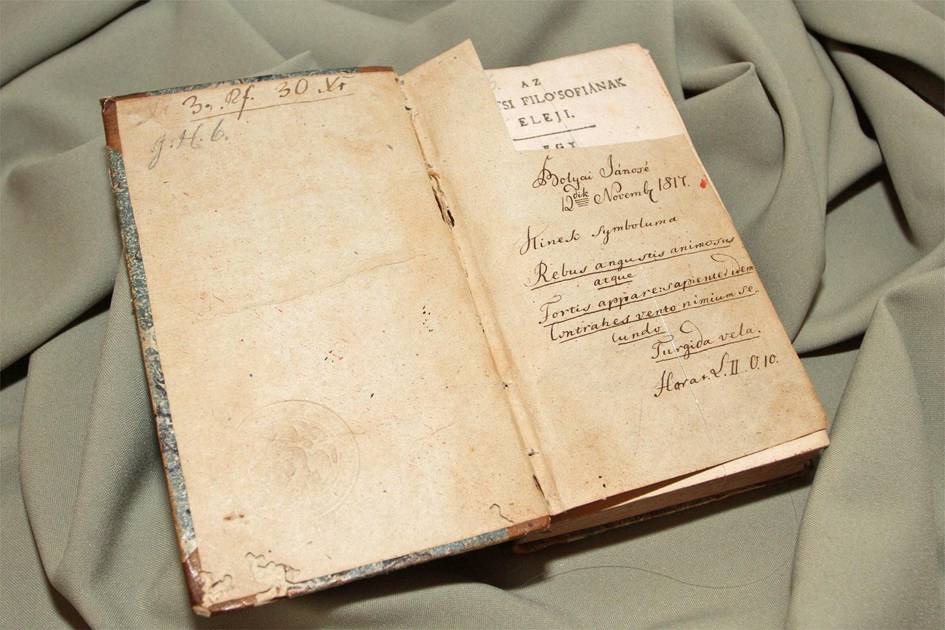 30 Xr
g. H. 6.
AZ
TSI FILO'SOFIÁNAK
ELEJI.
EGY
Bolyai Jánosé
12dik Novemb 1817.
Kinek symboluma
Rebus angustis animosus
atque
Fortis appare: sapienter idem
Contrahes vento nimium se-
cundo
Turgida vela.
Horat. L. II O. 10.